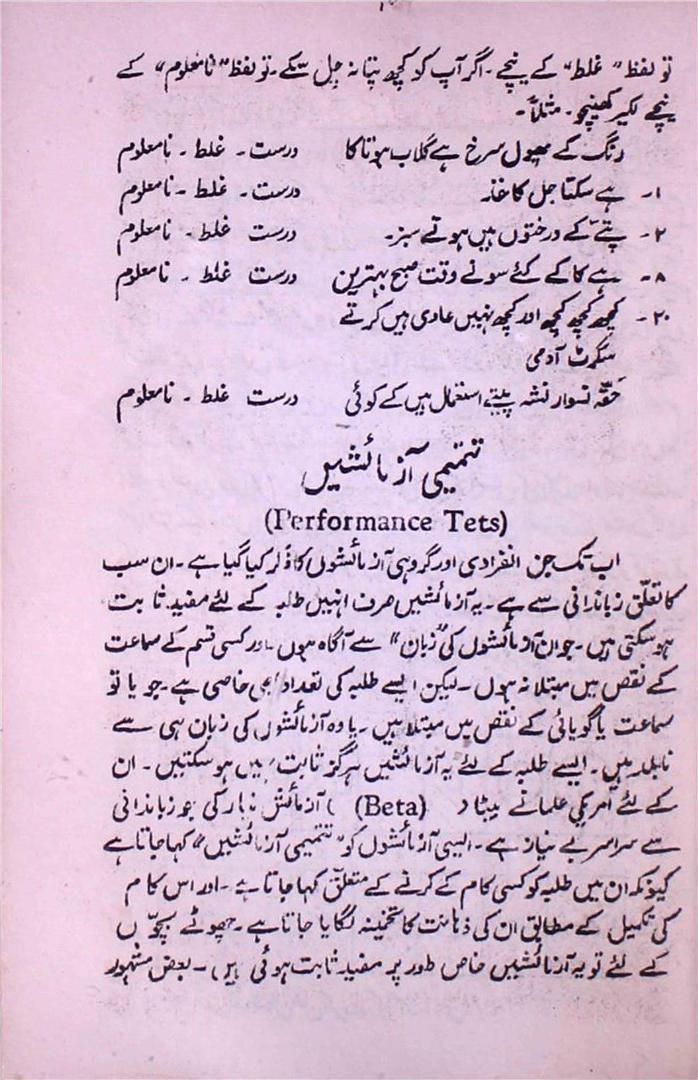 تو لفظ "غلط" کے نیچے۔ اگر آپ کو کچھ پتا نہ چل سکے۔ تو لفظ "نامعلوم" کے
نیچے لکیر کھینچو۔ مثلاً۔
رنگ کے پھول سرخ ہے گلاب ہوتا کا درست۔ غلط۔ نامعلوم
۱۔ ہے سکتا جل کاغذ۔ درست۔ غلط۔ نامعلوم
۲۔ پتے کے درختوں ہیں ہوتے سبز۔ درست غلط۔ نامعلوم
۸۔ ہے کا کے لئے سونے وقت صبح بہترین درست غلط۔ نامعلوم
۲۰۔ کچھ کچھ کچھ اور کچھ نہیں عادی ہیں کرتے
سگرٹ آدمی
حقّہ نسوار نشہ پیتے استعمال ہیں کے کوئی درست غلط۔ نامعلوم
تتمیمی آزمائشیں
(Performance Tets)
اب تک جن انفرادی اور گروہی آزمائشوں کا ذکر کیا گیا ہے۔ ان سب
کا تعلّق زباندانی سے ہے۔ یہ آزمائشیں صرف انہیں طلبہ کے لئے مفید ثابت
ہو سکتی ہیں۔ جو ان آزمائشوں کی "زبان" سے آگاہ ہوں۔ اور کسی قسم کے سماعت
کے نقص میں مبتلا نہ ہوں۔ لیکن ایسے طلبہ کی تعداد بھی خاصی ہے۔ جو یا تو
سماعت یا گویائی کے نقص میں مبتلا ہیں۔ یا وہ آزمائشوں کی زبان ہی سے
نابلد ہیں۔ ایسے طلبہ کے لئے یہ آزمائشیں ہرگز ثابت نہیں ہو سکتیں۔ ان
کے لئے امریکی علما نے بیٹا (Beta) آزمائش تیار کی جو زباندانی
سے سراسر بے نیاز ہے۔ ایسی آزمائشوں کو "تتمیمی آزمائشیں" کہا جاتا ہے
کیونکہ ان میں طلبہ کو کسی کام کے کرنے کے متعلّق کہا جاتا ہے۔ اور اس کام
کی تکمیل کے مطابق ان کی ذہانت کا تخمینہ لگایا جاتا ہے۔ چھوٹے بچّوں
کے لئے تو یہ آزمائشیں خاص طور پر مفید ثابت ہوئی ہیں۔ بعض مشہور